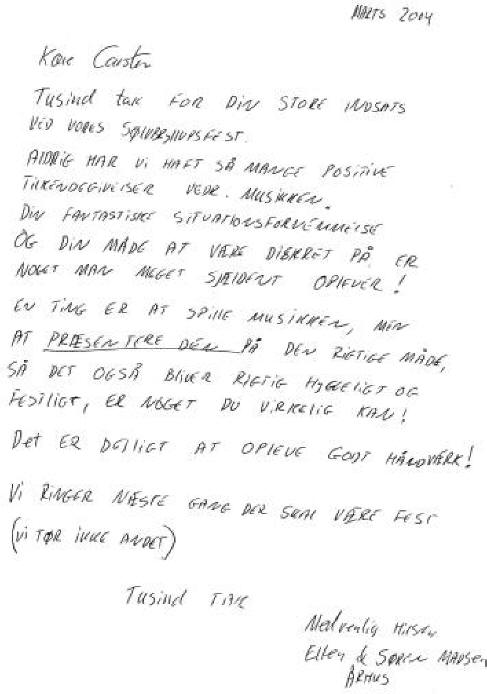 MARTS 2004
Kære Carsten
Tusind tak FOR DIN STORE INDSATS
VED VORES SØLVBRYLLUPSFEST.
ALDRIG HAR VI HAFT SÅ MANGE POSITIVE
TILKENDEGIVELSER VEDR. MUSIKKEN.
DIN FANTASTISKE SITUATIONSFORNEMMELSE
OG DIN MÅDE AT VÆRE DISKRET PÅ ER
NOGET MAN MEGET SJÆLDENT OPLEVER!
EN TING ER AT SPILLE MUSIKKEN, MEN
AT PRÆSENTERE DEN PÅ DEN RIGTIGE MÅDE,
SÅ DET OGSÅ BLIVER RIGTIG HYGGELIGT OG
FESTLIGT, ER NOGET DU VIRKELIG KAN!
Det ER DEJLIGT AT OPLEVE GODT HÅNDVÆRK!
VI RINGER NÆSTE GANG DER SKAL VÆRE FEST
(VI TØR IKKE ANDET)
Tusind TAK
Med venlig Hilsen
Ellen & SØREN MADSEN
ÅRHUS